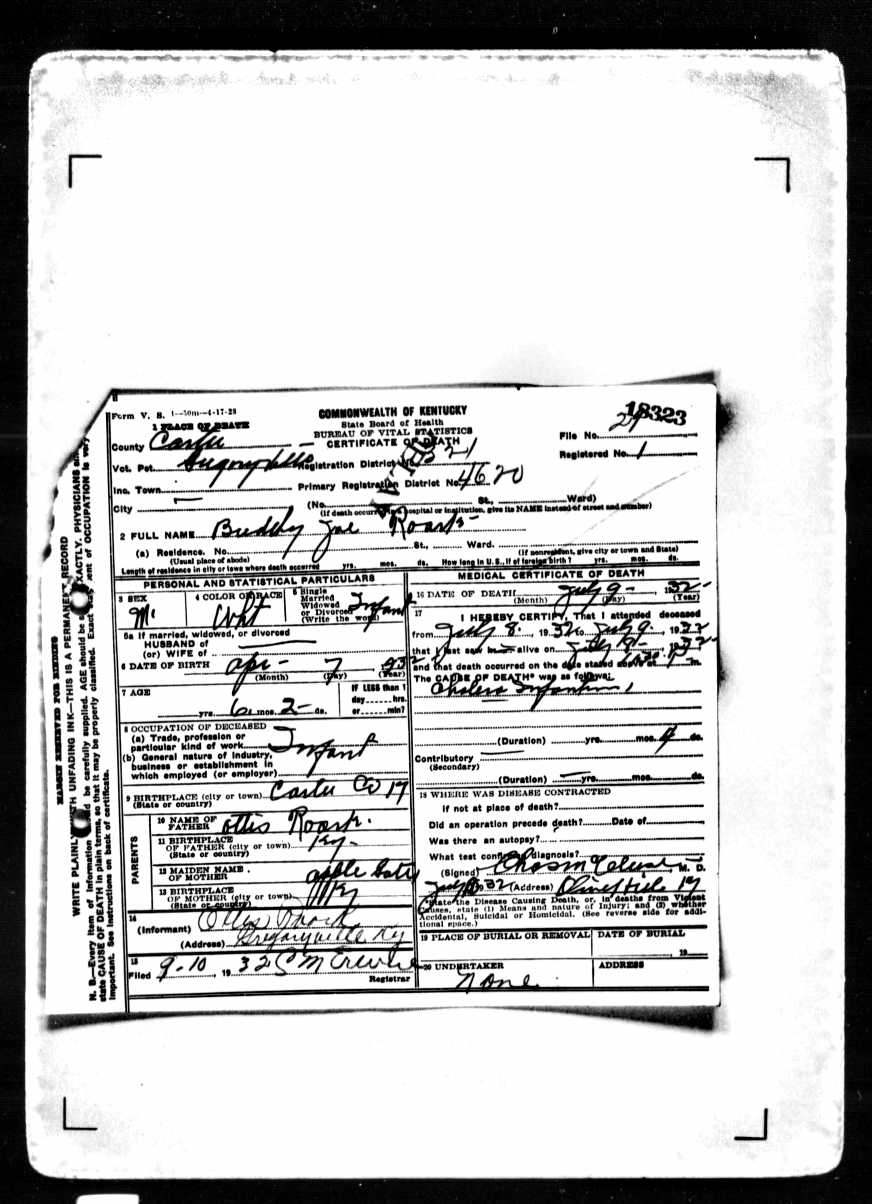 Form V. S. 1—50m—4-17-28
COMMONWEALTH OF KENTUCKY
State Board of Health
BUREAU OF VITAL STATISTICS
CERTIFICATE OF DEATH
18323
File No. 21
Registered No. 1
1 PLACE OF DEATH
County Carter
Vot. Pct. Gregoryville Registration District No. 321
Inc. Town Primary Registration District No. 4620
City (No. St., Ward)
(If death occurred in a hospital or institution, give its NAME instead of street and number)
2 FULL NAME Buddy Joe Roark
(a) Residence. No. St., Ward.
(Usual place of abode) (If nonresident, give city or town and State)
Length of residence in city or town where death occurred yrs. mos. ds. How long in U. S., if of foreign birth? yrs. mos. ds.
PERSONAL AND STATISTICAL PARTICULARS
3 SEX
M
4 COLOR OR RACE
Wht
5 Single
Married
Widowed
or Divorced
(Write the word)
Infant
5a If married, widowed, or divorced
HUSBAND of
(or) WIFE of
6 DATE OF BIRTH Apr- 7, 1932
(Month) (Day) (Year)
7 AGE
yrs. 6 mos. 2 ds.
IF LESS than 1
day hrs.
or min?
8 OCCUPATION OF DECEASED
(a) Trade, profession or
particular kind of work Infant
(b) General nature of industry,
business or establishment in
which employed (or employer)
9 BIRTHPLACE (city or town) Carter Co Ky
(State or country)
PARENTS
10 NAME OF
FATHER Ottis Roark.
11 BIRTHPLACE
OF FATHER (city or town) Ky-
(State or country)
12 MAIDEN NAME
OF MOTHER
13 BIRTHPLACE
OF MOTHER (city or town) Ky
(State or country)
14
(Informant) Ottis Roark
(Address) Gregoryville Ky
15
Filed 9-10, 1932
Registrar
MEDICAL CERTIFICATE OF DEATH
16 DATE OF DEATH July 9-, 1932
(Month) (Day) (Year)
17
I HEREBY CERTIFY, That I attended deceased
from July 8, 1932 to July 9, 1932
that I last saw h alive on July 8, 1932
and that death occurred on the date stated above at m.
The CAUSE OF DEATH* was as follows:
Cholera Infantum
(Duration) yrs. mos. 4 ds.
Contributory
(Secondary)
(Duration) yrs. mos. ds.
18 WHERE WAS DISEASE CONTRACTED
If not at place of death?
Did an operation precede death? Date of
Was there an autopsy?
What test confirmed diagnosis?
(Signed) Chas M, M. D.
July 1932 (Address) Olive Hill Ky
*State the Disease Causing Death, or, in deaths from Violent
Causes, state (1) Means and nature of Injury; and (2) whether
Accidental, Suicidal or Homicidal. (See reverse side for addi-
tional space.)
19 PLACE OF BURIAL OR REMOVAL DATE OF BURIAL
19
20 UNDERTAKER ADDRESS
None
MARGIN RESERVED FOR BINDING
WRITE PLAINLY WITH UNFADING INK—THIS IS A PERMANENT RECORD
N. B.—Every item of information should be carefully supplied. AGE should be stated EXACTLY. PHYSICIANS
state CAUSE OF DEATH in plain terms, so that it may be properly classified. Exact statement of OCCUPATION is very
important. See instructions on back of certificate.